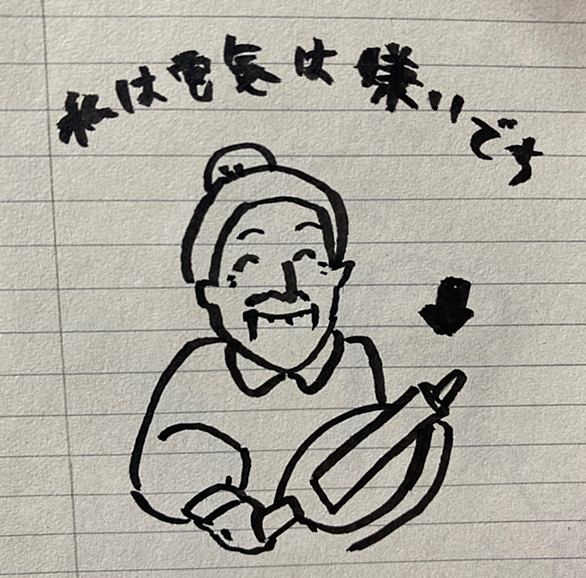 私は電気は嫌いです